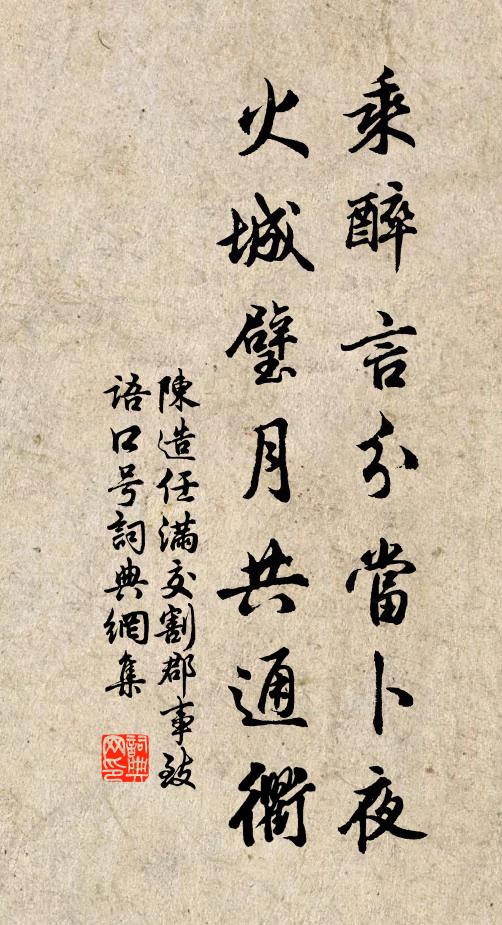 乘醉言分當卜夜
火城璧月共通衢
陳造任滿交割郡事致
語口号詞典網集
詞典
网印